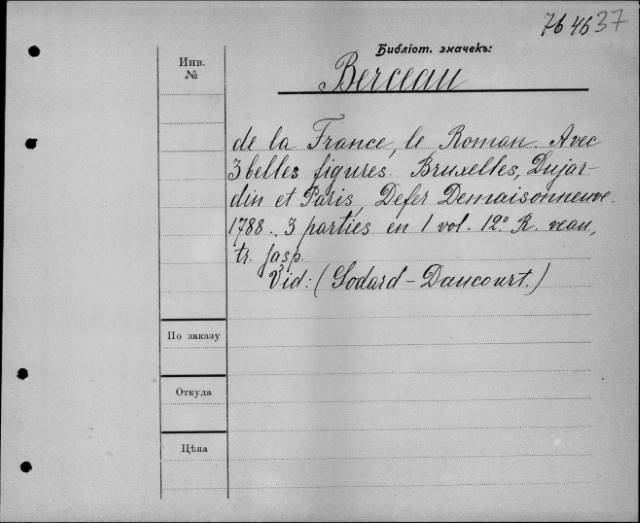 76 4637
Библіот. значекъ:
Инв.
№
Berceau
de la France, le Roman. Avec
3 belles figures. Bruxelles, Dujar-
din et Paris, Defer Demaisonneuve.
1788. 3 parties en 1 vol. 12º R. veau,
tr. jasp.
Vid: (Godard-Daucourt.)
По заказу
Откуда
Цѣна